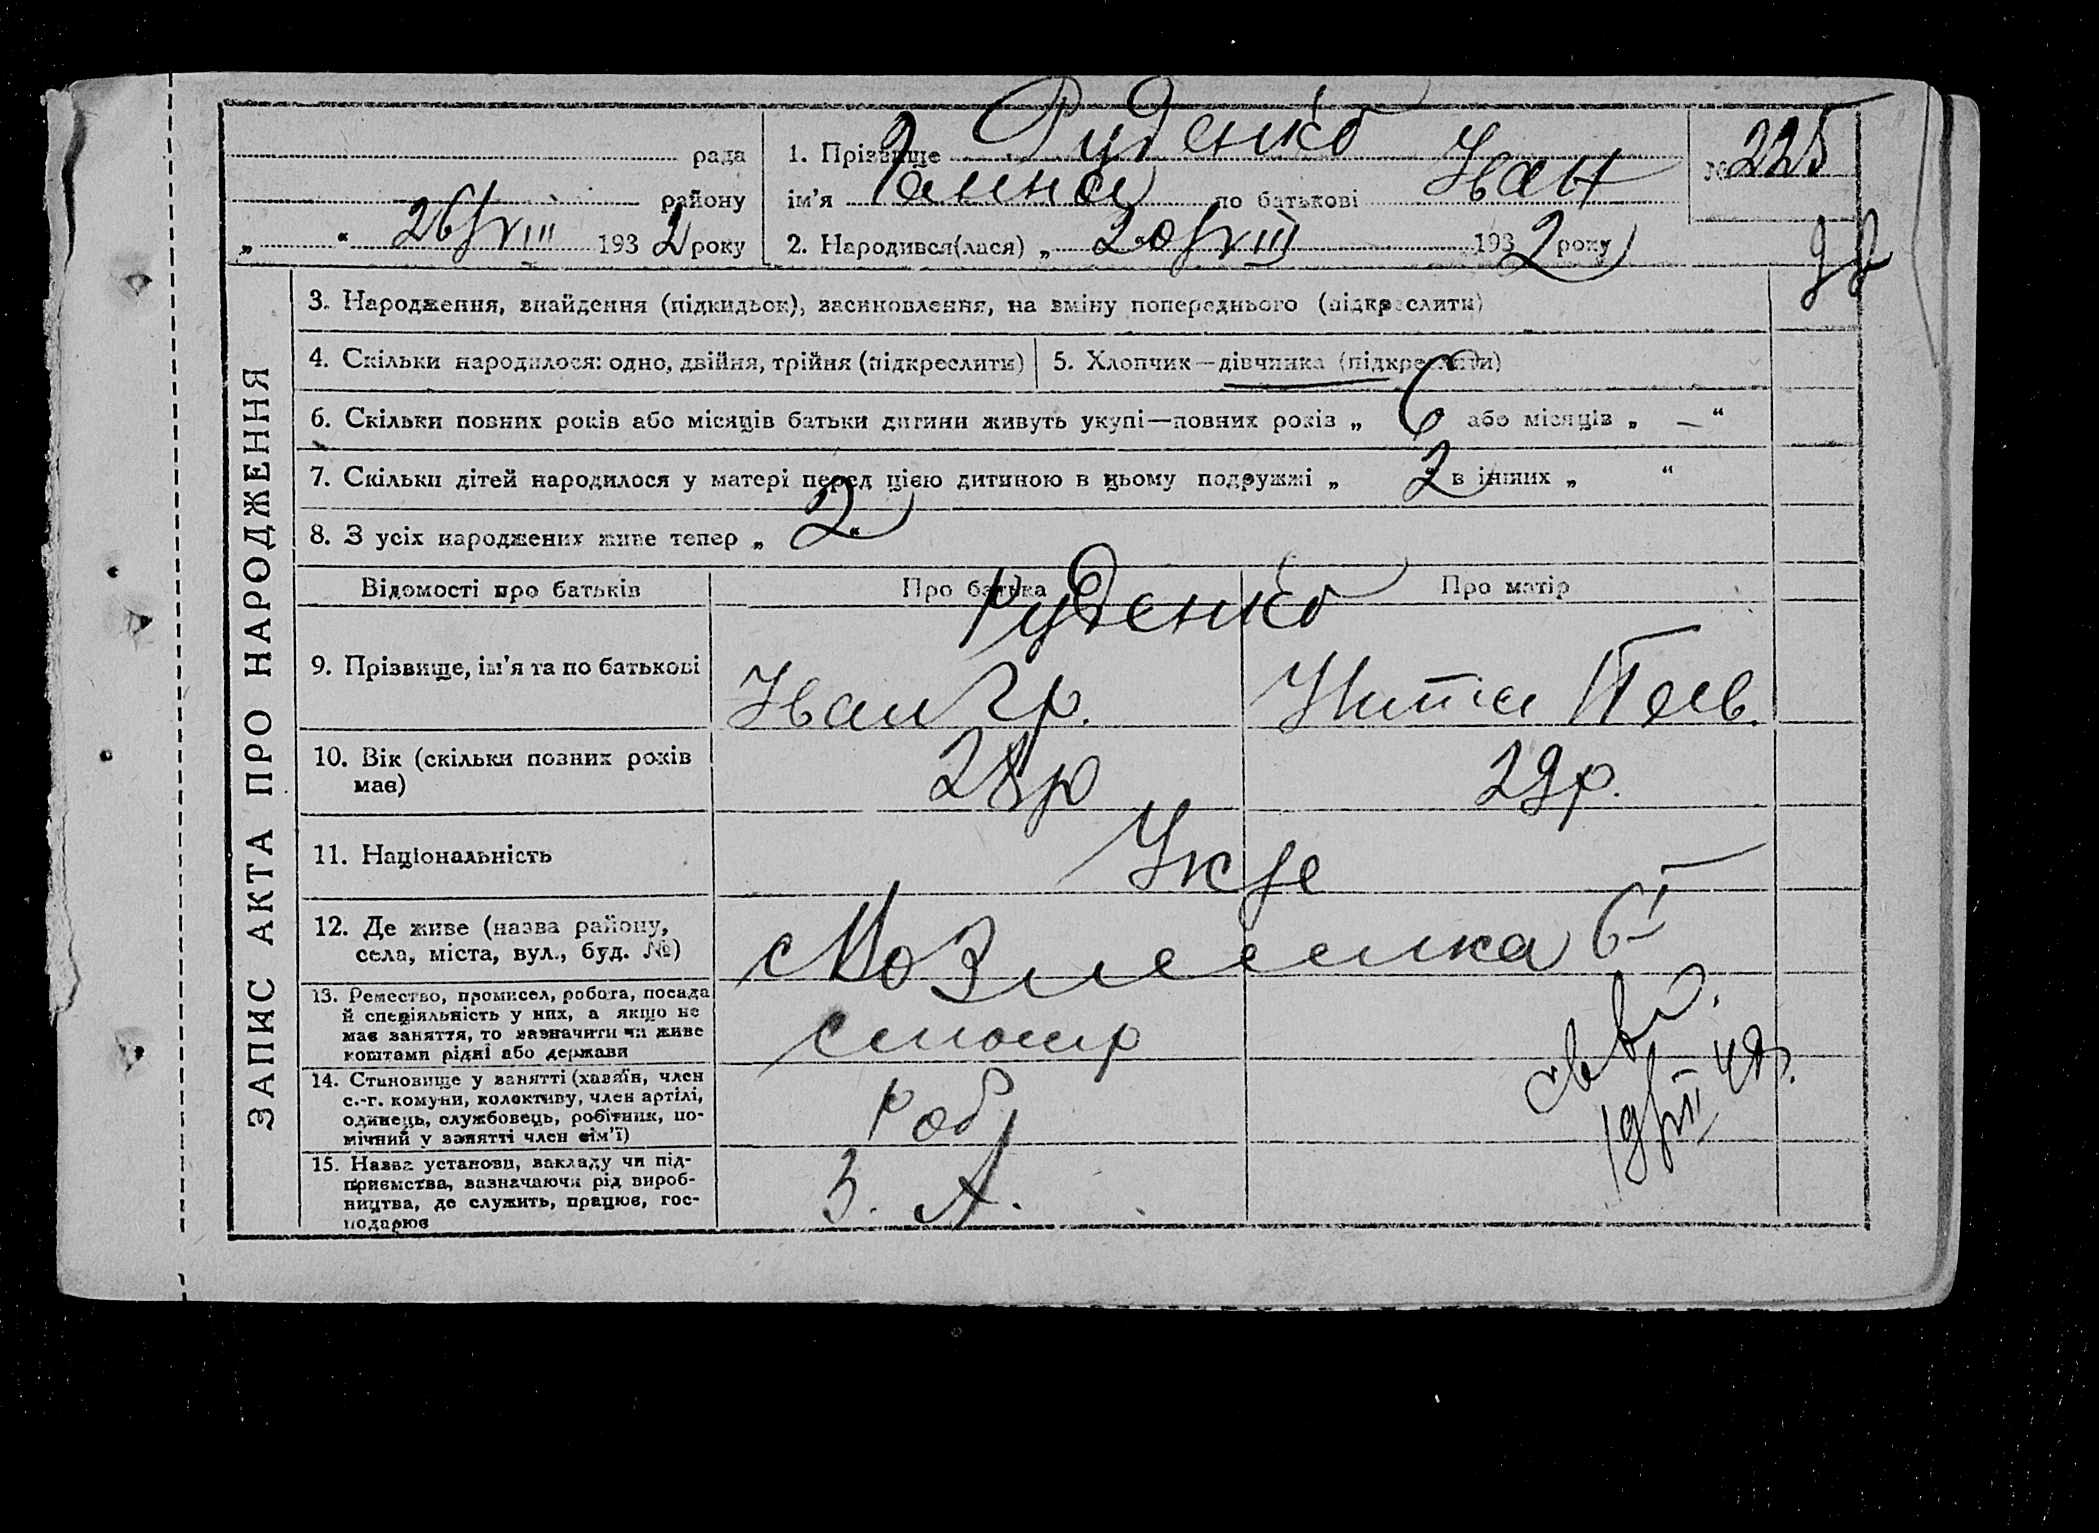 рада
району
„ “ 26/VIII 1932 року
1. Прізвище Руденко
ім’я Ганна по батькові Іван
2. Народився(лася) „ 20/VIII 1932 року
№ 225
ЗАПИС АКТА ПРО НАРОДЖЕННЯ
3. Народження, знайдення (підкидьок), засиновлення, на зміну попереднього (підкреслити)
4. Скільки народилося: одно, двійня, трійня (підкреслити)
5. Хлопчик—дівчинка (підкреслити)
6. Скільки повних років або місяців батьки дитини живуть укупі—повних років „ 6 або місяців „ — “
7. Скільки дітей народилося у матері перед цією дитиною в цьому подружжі „ 2 в інших „ “
8. З усіх народжених живе тепер „ 2 “
Відомості про батьків Про батька Про матір
Руденко
9. Прізвище, ім’я та по батькові Іван Гр.
10. Вік (скільки повних років має) 28 р 29 р.
11. Національність Укр
12. Де живе (назва району, села, міста, вул., буд. №)
13. Ремество, промисел, робота, посада
й спеціяльність у них, а якщо не
має заняття, то зазначити чи живе
коштами рідні або держави
14. Становище у занятті (хазяїн, член
с.-г. комуни, колективу, член артілі,
одинець, службовець, робітник, по-
мічний у занятті член сім’ї)
роб
15. Назва установи, закладу чи під-
приємства, зазначаючи рід вироб-
ництва, де служить, працює, гос-
подарює
З. А.